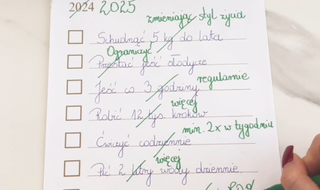 2024 2025
zmieniając styl życia
Schudnąć 5 kg do lata
Ograniczyć
Przestać jeść słodycze
Jeść co 3 godziny regularnie
więcej
Robić 12 tys. kroków
min. 2x w tygodniu
Ćwiczyć codziennie
więcej
Pić 2 litry wody dziennie